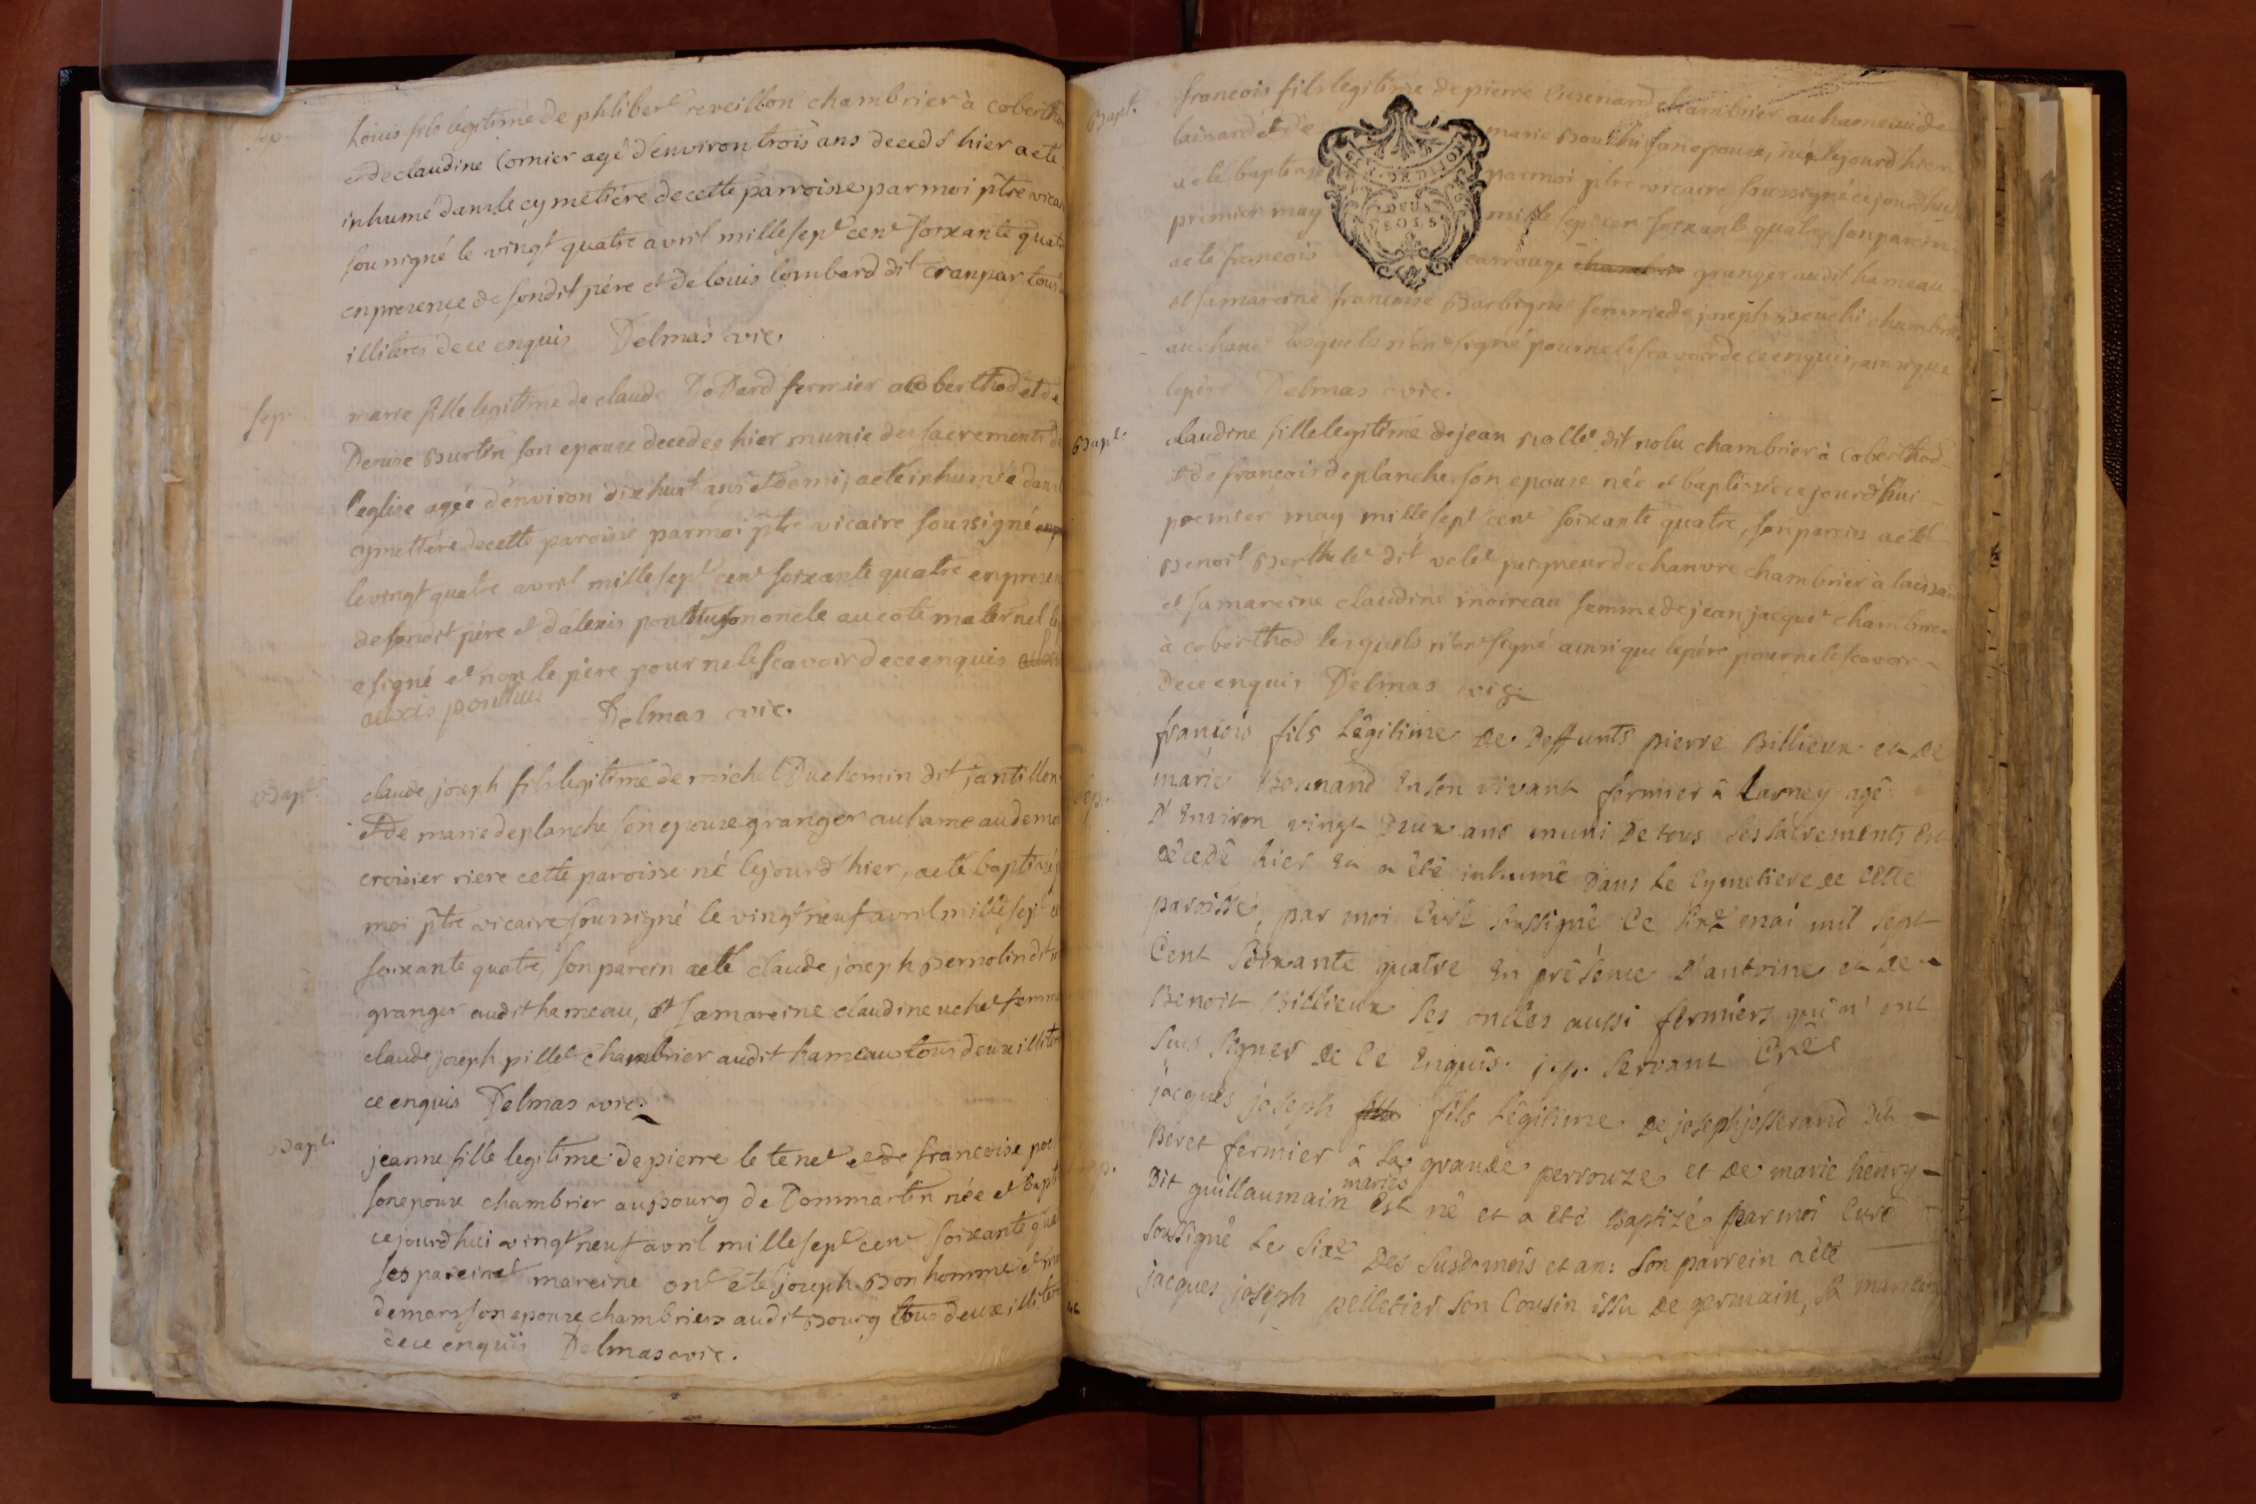 Louis fils legitime de philibert reveillon chambrier à coberthod
et de claudine Cornier agé d'environ trois ans decedé hier a eté
inhumé dans le cymetière de cette parroisse par moi ptre vicai
soussigné le vingt quatre avril mille sept cent soixante quatr
en presence de sondit père et de louis lombard dit tous
illiterés de ce enquis Delmas vic.
sep.
marie fille legitime de claude fermier a coberthod et de
Denise Burtin son epouse decedee hier munie des sacrements de
l'eglise agée d'environ dix huit ans et demi, a eté inhumée dans
cymettère de cette paroisse par moi ptre vicaire soussigné
le vingt quatre avril mille sept cent soixante quatre en presen
de sondit père et d'alexis ponthus son oncle au coté maternel
a signé et non le père pour ne le scavoir de ce enquis
alexis ponthus
Delmas vic.
Bapt.
claude joseph fils legitime de michel Duchemin dit jantillon
et de marie deplanche son epouse granger au hameau de
croisier riere cette paroisse né le jourd'hier, a eté baptisé p
moi ptre vicaire soussigné le vingt neuf avril mille sept c
soixante quatre, son parein a eté claude joseph pernolin dit
granger audit hameau, et sa mareine claudine uchet femme
claude joseph pillet chambrier audit hameau tous deux illiter
ce enquis Delmas vic.
Bapt.
jeanne fille legitime de pierre le tenet et de francoise
son epouse chambrier au Bourg de Dommartin née et bapt
cejourd'hui vingt neuf avril mille sept cent soixante qua
ses parein et mareine ont eté joseph Bonhomme et
demars son epouse chambriers audit Bourg tous deux illiter
de ce enquis Delmas vic.
Bapt.
francois fils legitime de pierre chambrier au hameau de
et de marie Bouchi son epouse, né le jourd'hier
a eté baptisé par moi ptre vicaire soussigné cejourd'hui
premier may mille sept cent soixante quatre, son parein
a eté francois carrouge chambrier granger audit hameau
et sa mareine francoise femme de joseph Bouchi chambrier
lesquels n'ont signé pour ne le scavoir de ce enquis, ainsi que
le père Delmas vic.
Bapt.
claudine fille legitime de jean dit nolu chambrier à coberthod
et de francoise deplanche son epouse née et baptisée cejourd'hui
premier may mille sept cent soixante quatre, son parein a eté
Benoit Berthelet dit velet peigneur de chanvre chambrier à
et sa mareine claudine moireau femme de jean jacques chambrier
à coberthod lesquels n'ont signé ainsi que le père pour ne le scavoir
de ce enquis Delmas vic.
sep.
françois fils Légitime De Deffunts pierre Billieux et de
marie Bonnand En son vivant fermier à Larney agé
D'Environ vingt Deux ans muni De tous les sacrements Est
Décédé hier Et a été inhumé Dans Le Cymetiere de Cette
paroisse, par moi Curé soussigné Ce six mai mil sept
Cent Soixante quatre En présence D'antoine et de
Benoit Billieux ses oncles aussi fermiers qui n'ont
sus signer de Ce Enquis. j. p. Servant Curé
jacques joseph fils Légitime De joseph josserand Dit
Beret fermier à La grande perrouze et de marie henry
Dit guillaumain mariés Est né et a été Baptizé par moi Curé
soussigné Le six Des susdt mois et an: son parrein a été
jacques joseph pelletier son Cousin issu De germain, sa marreine